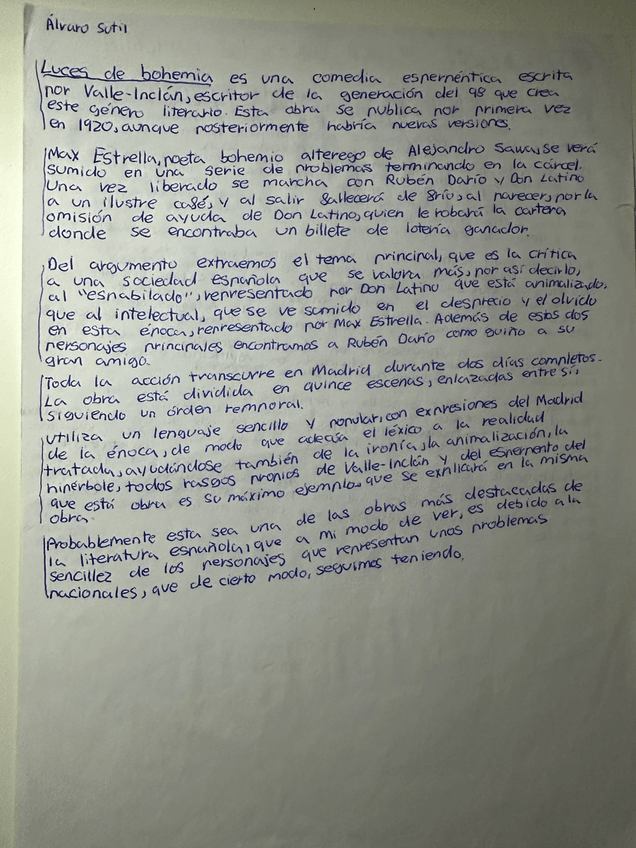 Álvaro Sutil
Luces de bohemia es una comedia esperpéntica escrita
por Valle-Inclán, escritor de la generación del 98 que crea
este género literario. Esta obra se publica por primera vez
en 1920, aunque posteriormente habría nuevas versiones.
Max Estrella, poeta bohemio alterego de Alejandro Sawa, se verá
sumido en una serie de problemas terminando en la cárcel.
Una vez liberado se marcha con Rubén Darío y Don Latino
a un ilustre café, y al salir fallecerá de frío, al parecer, por la
omisión de ayuda de Don Latino, quien le robará la cartera
donde se encontraba un billete de lotería ganador.
Del argumento extraemos el tema principal, que es la crítica
a una sociedad española que se valora más, por así decirlo,
al "espabilado", representado por Don Latino que está animalizado,
que al intelectual, que se ve sumido en el desprecio y el olvido
en esta época, representado por Max Estrella. Además de estos dos
personajes principales encontramos a Rubén Darío como guiño a su
gran amigo.
Toda la acción transcurre en Madrid durante dos días completos.
La obra está dividida en quince escenas, enlazadas entre sí,
siguiendo un órden temporal.
Utiliza un lenguaje sencillo y popular, con expresiones del Madrid
de la época, de modo que adecúa el léxico a la realidad
tratada, ayudándose también de la ironía, la animalización, la
hipérbole, todos rasgos propios de Valle-Inclán y del esperpento del
que está obra es su máximo ejemplo, que se explicará en la misma
obra.
Probablemente esta sea una de las obras más destacadas de
la literatura española, que a mi modo de ver, es debido a la
sencillez de los personajes que representan unos problemas
nacionales, que de cierto modo, seguimos teniendo.